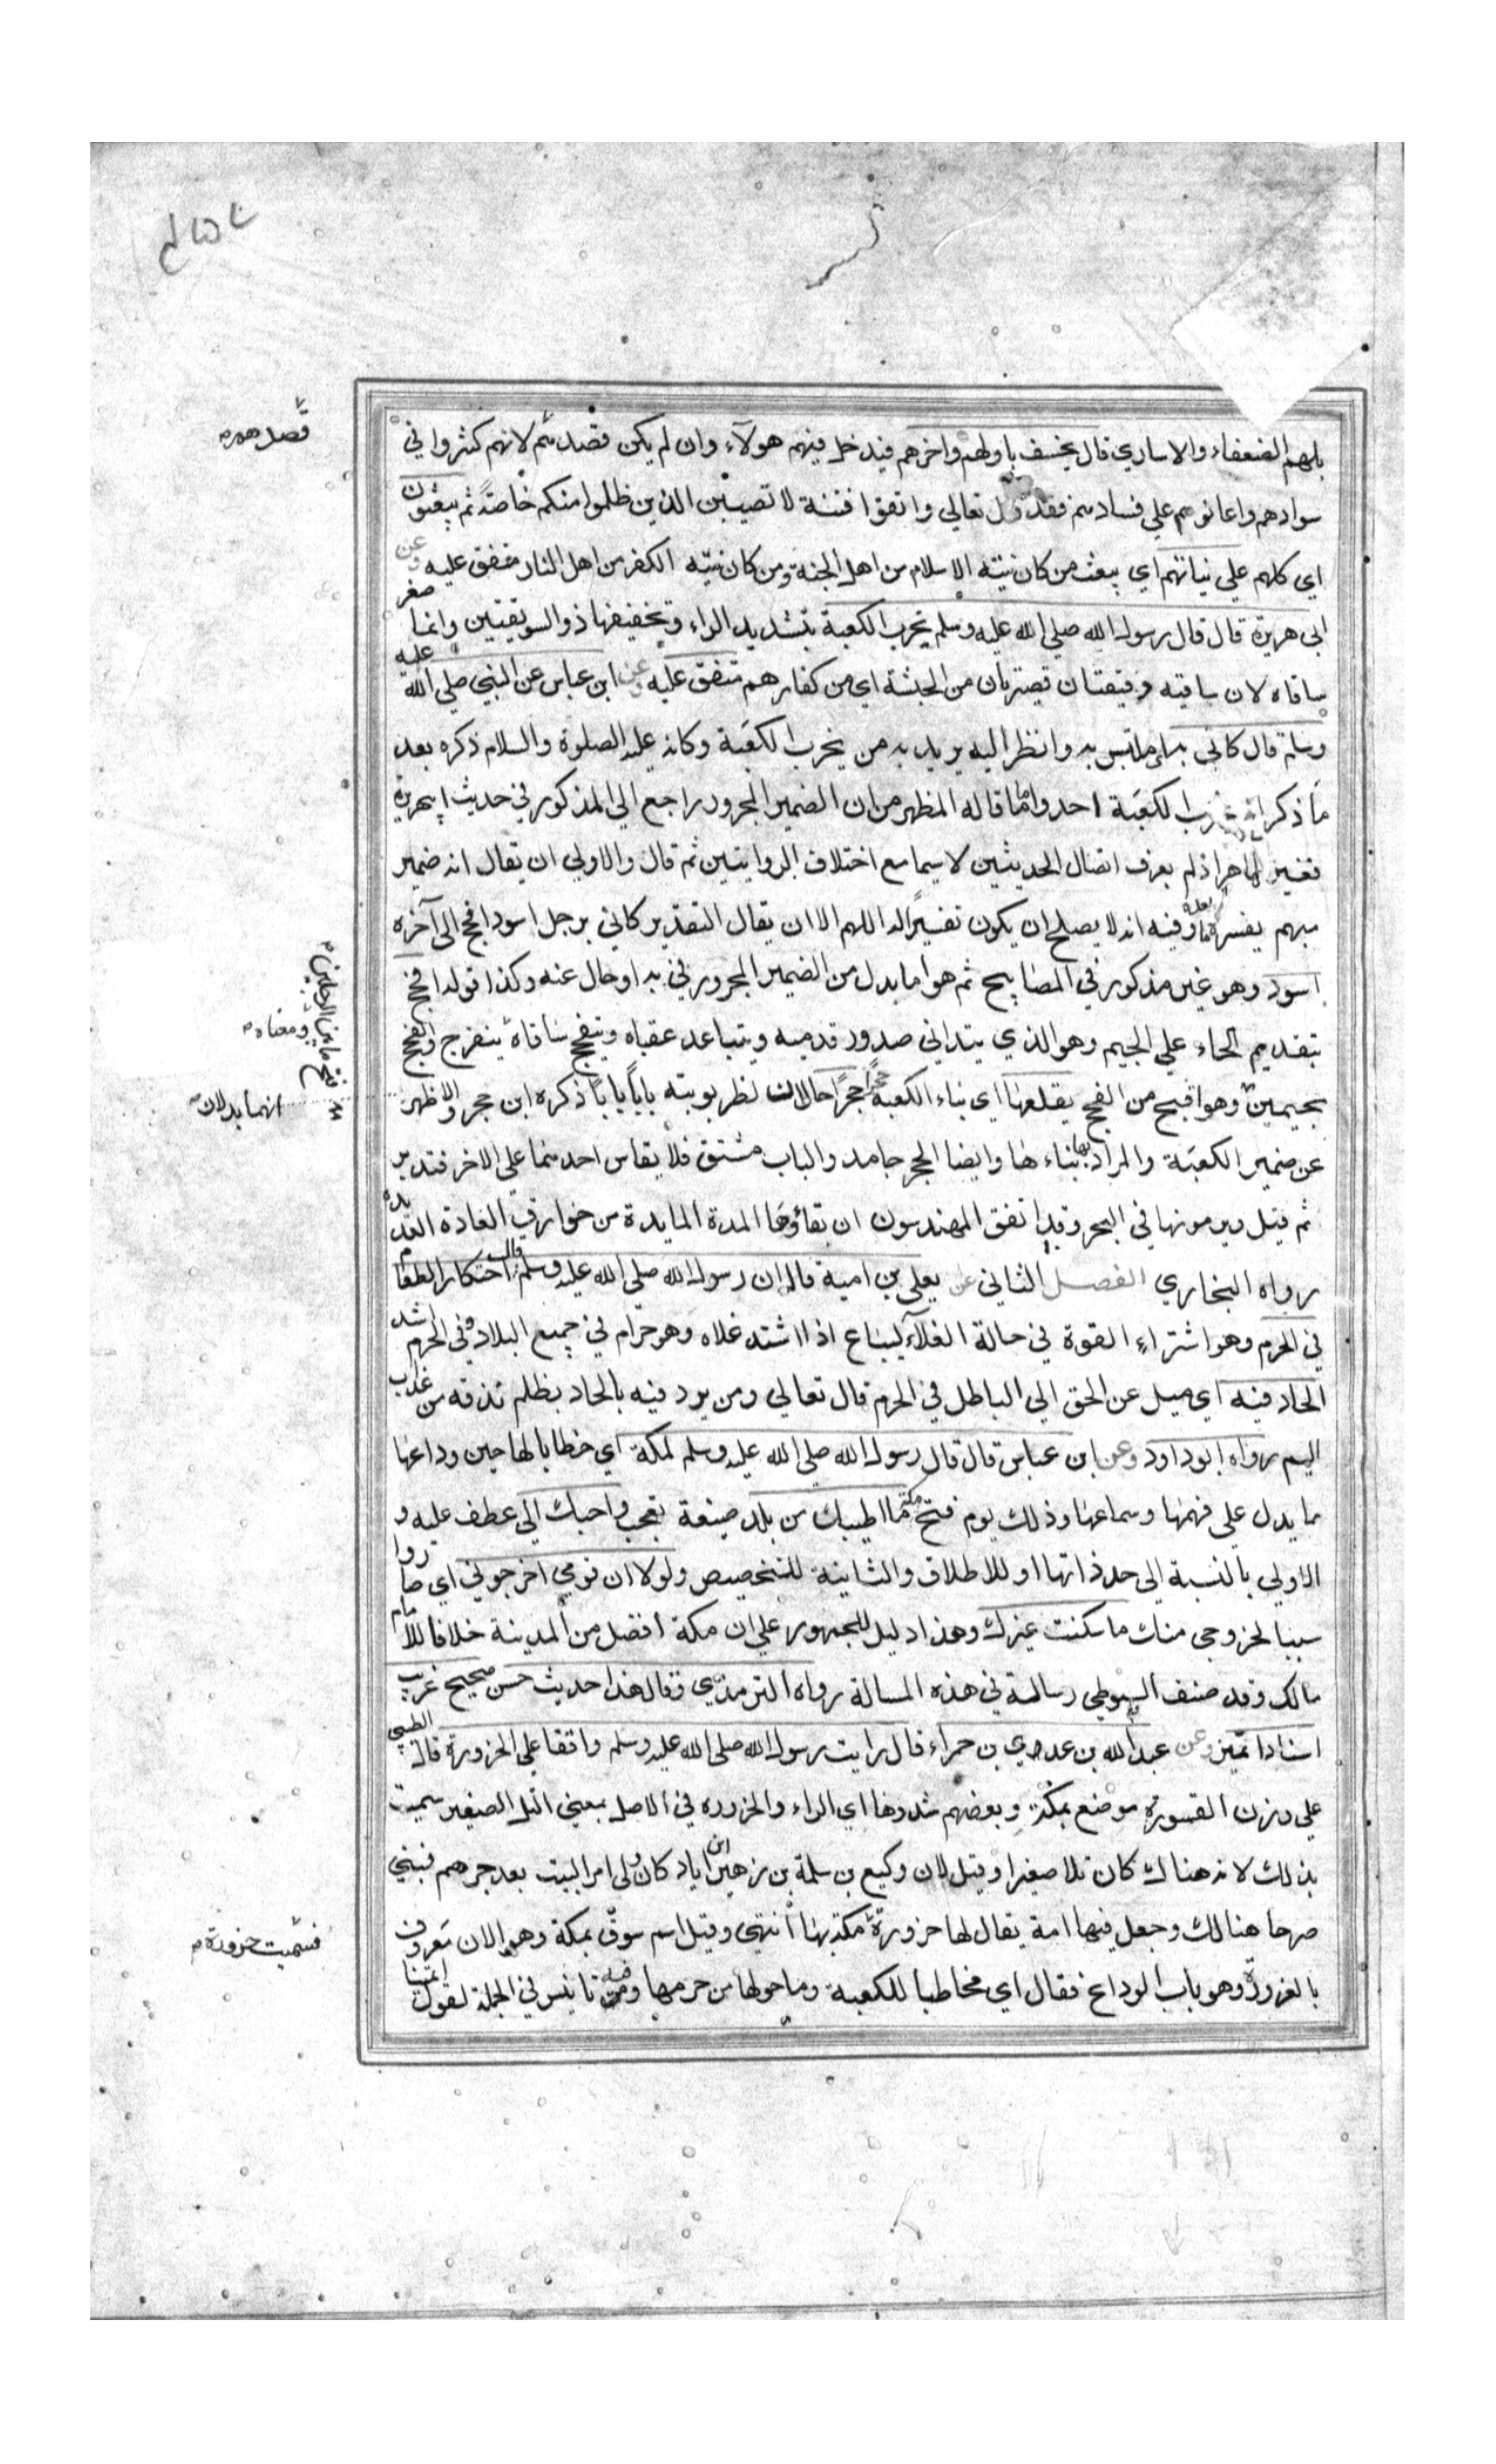 بلهم الضعفاء والاساري قال يخسف باولهم واخرهم فيدخل فيهم هولآء وان لم يكن قصدهم لانهم كثروا في
سوادهم واعانوهم علي فسادهم فقد قال تعالي واتقوا فتنة لا تصيبن الذين ظلموا منكم خاصة ثم يبعثون
اي كلهم علي نياتهم اي يبعث من كان نيته الاسلام من اهل الجنة ومن كان نيته الكفر من اهل النار متفق عليه وعن
ابي هريرة قال قال رسول الله صلي الله عليه وسلم يخرب الكعبة بتشديد الراء وتخفيفها ذو السويقتين وانما صغر
ساقاه لان ساقيه دقيقتان قصيرتان من الحبشة اي من كفارهم متفق عليه وعن ابن عباس عن النبي صلي الله عليه
وسلم قال كاني به اي ملتبس به وانظر اليه يريد به من يخرب الكعبة وكانه عليه الصلوة والسلام ذكره بعد
ما ذكر تخريب الكعبة احد واما ما قاله المظهر من ان الضمير المجرور راجع الي المذكور في حديث ابي هريرة
فغير ظاهر اذ لم يعرف اتصال الحديثين لا سيما مع اختلاف الروايتين ثم قال والاولي ان يقال انه ضمير
مبهم يفسره ما بعده وفيه انه لا يصلح ان يكون تفسيرًا له اللهم الا ان يقال التقدير كاني برجل اسود افحج الي آخره
اسود وهو غير مذكور في المصابيح ثم هو اما بدل من الضمير المجرور في به او حال عنه وكذا قوله افحج
بتقديم الحاء علي الجيم وهو الذي يتداني صدور قدميه ويتباعد عقباه ويتفحج ساقاه ينفرج والفجج
بجيمين وهو اقبح من الفحج يقلعها اي بناء الكعبة حجرًا حجرًا حالان نظر بوبته بابًا بابًا ذكره ابن حجر والاظهر
عن ضمير الكعبة والمراد بها بناءها وايضا الحجر جامد والباب مشتق فلا يقاس احدهما علي الاخر فتدبر
ثم قيل ويرمونها في البحر وقد اتفق المهندسون ان بقاؤها المدة المايدة من خوارق العادة
رواه البخاري الفصل الثاني عن يعلي بن امية قال ان رسول الله صلي الله عليه وسلم قال احتكار الطعام
في الحرم وهو اشتراء القوة في حالة الغلآء ليباع اذا اشتد غلاه وهو حرام في جميع البلاد وفي الحرم اشد
الحاد فيه اي ميل عن الحق الي الباطل في الحرم قال تعالي ومن يرد فيه بالحاد بظلم نذقه من عذاب
اليم رواه ابوداود وعن ابن عباس قال قال رسول الله صلي الله عليه وسلم لمكة اي خطابا لها حين وداعها
ما يدل علي فهمها وسماعها وذلك يوم فتح مكة ما اطيبك من بلد صيغة تعجب واحبك الي عطف عليه و
الاولي بالنسبة الي حد ذاتها او للاطلاق والثانية للتخصيص ولولا ان قومي اخرجوني اي صاروا
سببا لخروجي منك ما سكنت غيرك وهذا دليل للجمهور علي ان مكة افضل من المدينة خلافا للامام
مالك وقد صنف السيوطي رسالة في هذه المسالة رواه الترمذي وقال هذا حديث حسن صحيح غريب
اسنادا تميز وعن عبد الله بن عدي بن حمراء قال رايت رسول الله صلي الله عليه وسلم واقفا علي الحزورة قال الطيبي
علي وزن القسورة موضع بمكة وبعضهم شددها اي الراء والحزورة في الاصل بمعني التل الصغير سميت
بذلك لانه هناك كان تلا صغيرا وقيل لان وكيع بن سلمة بن زهير ابن اياد كان ولي امر البيت بعد جرهم فبني
صرحا هنالك وجعل فيها امة يقال لها حزورة مكة بها انتهي وقيل اسم سوق بمكة وهو الان معروف
بالعزورة وهو باب الوداع فقال اي مخاطبا للكعبة وما حولها من حرمها وفيه تانيس في الجملة لقول ايمتنا
قصدهم
فتح ما بين الرجلين
ومعناه
انهما بدلان
فسميت حزورة